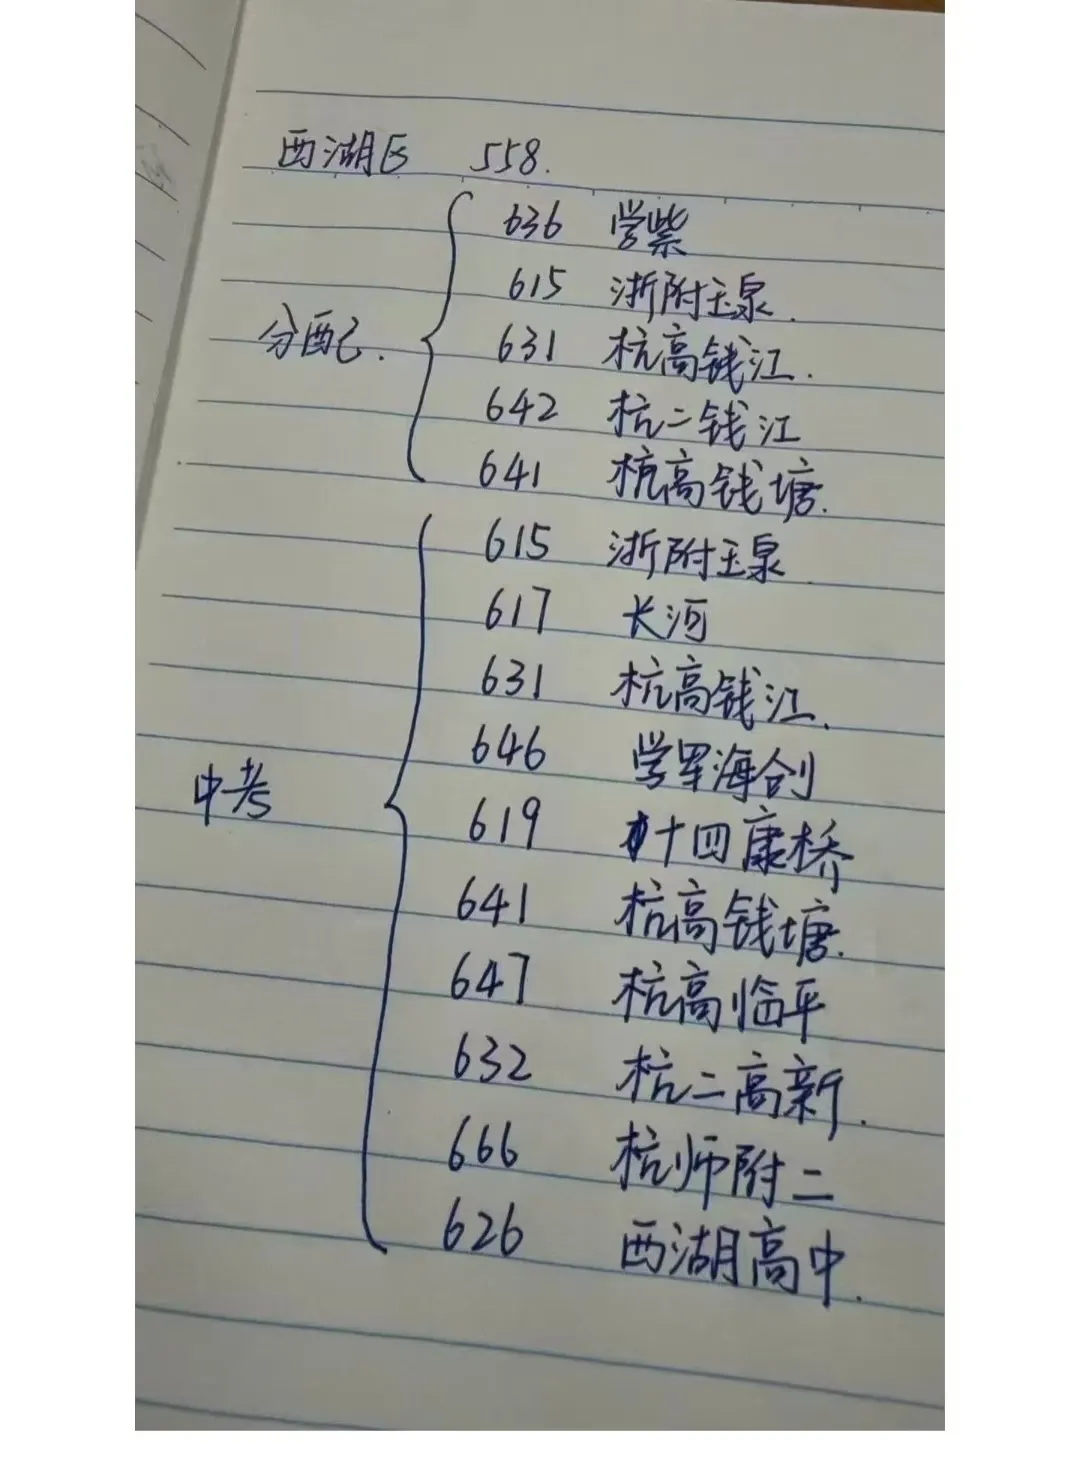 西湖区 558.
636 学紫
615 浙附玉泉.
分配己. 631 杭高钱江.
642 杭二钱江
641 杭高钱塘.
615 浙附玉泉.
617 长河
631 杭高钱江.
646 学军海创
中考 619 十四康桥
641 杭高钱塘.
647 杭高临平
632 杭二高新.
666 杭师附二
626 西湖高中.